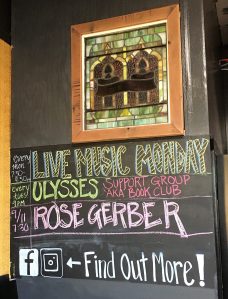 every
mon
7:30-
LIVE MUSIC MONDAY
every
tues
9PM
ULYSSES
SUPPORT GROUP
AKA BOOK CLUB
9/11
7:30
ROSE GERBER
f
← Find Out More!